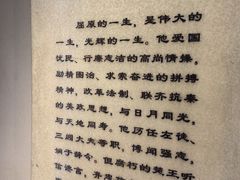 屈原的一生，是伟大的
一生，光辉的一生。他爱国
忧民、行廉志洁的高尚情操，
励精图治、求索奋进的拼搏
精神，改革法制、联齐抗秦
的英政思想，与日月同光，
与天地同寿。他历任左徒、
三闾大夫等职，博闻强志，
娴于辞令。但腐朽的楚王听
信谗言，